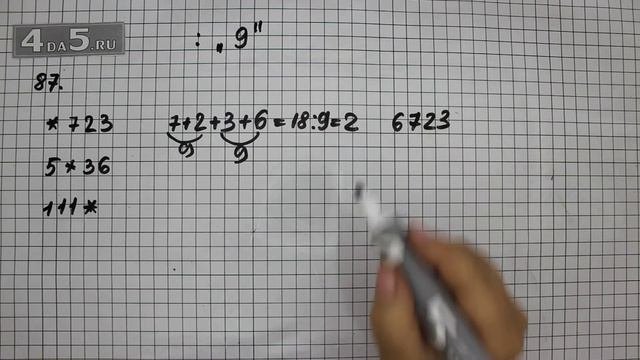 4DA5.RU
: „9"
87.
*723 7+2+3+6=18:9=2 6723
9 9
5*36
111*